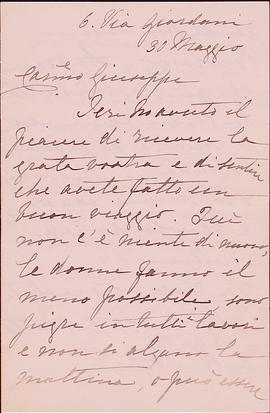 6. Via Giordani
30 Maggio
Carmo Giuseppe
Ieri ho avuto il
piacere di ricevere la
grata vostra e di sentire
che avete fatto un
buon viaggio.
non c'è niente di nuovo,
le donne fanno il
meno possibile sono
pigre in tutti i lavori
e non si alzano la
mattina, o può essere